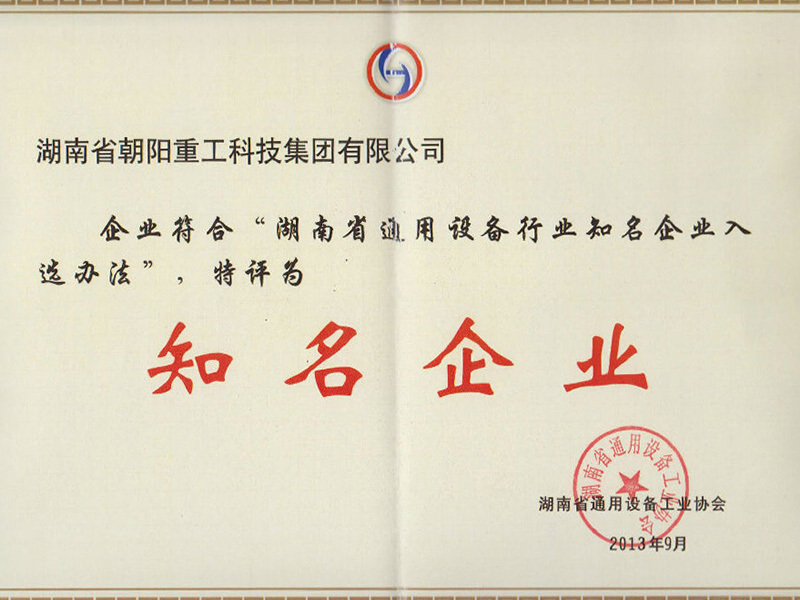 湖南省朝阳重工科技集团有限公司
企业符合“湖南省通用设备行业知名企业入
选办法”，特评为
知名企业
湖南省通用设备工业协会
湖南省通用设备工业协会
2013年9月